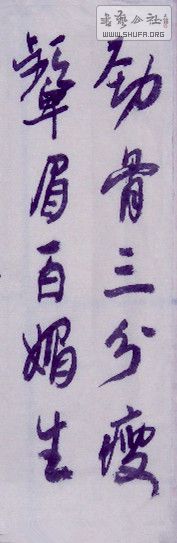 劲骨三分瘦
颦眉百媚生
书艺公社
WWW.SHUFA.ORG